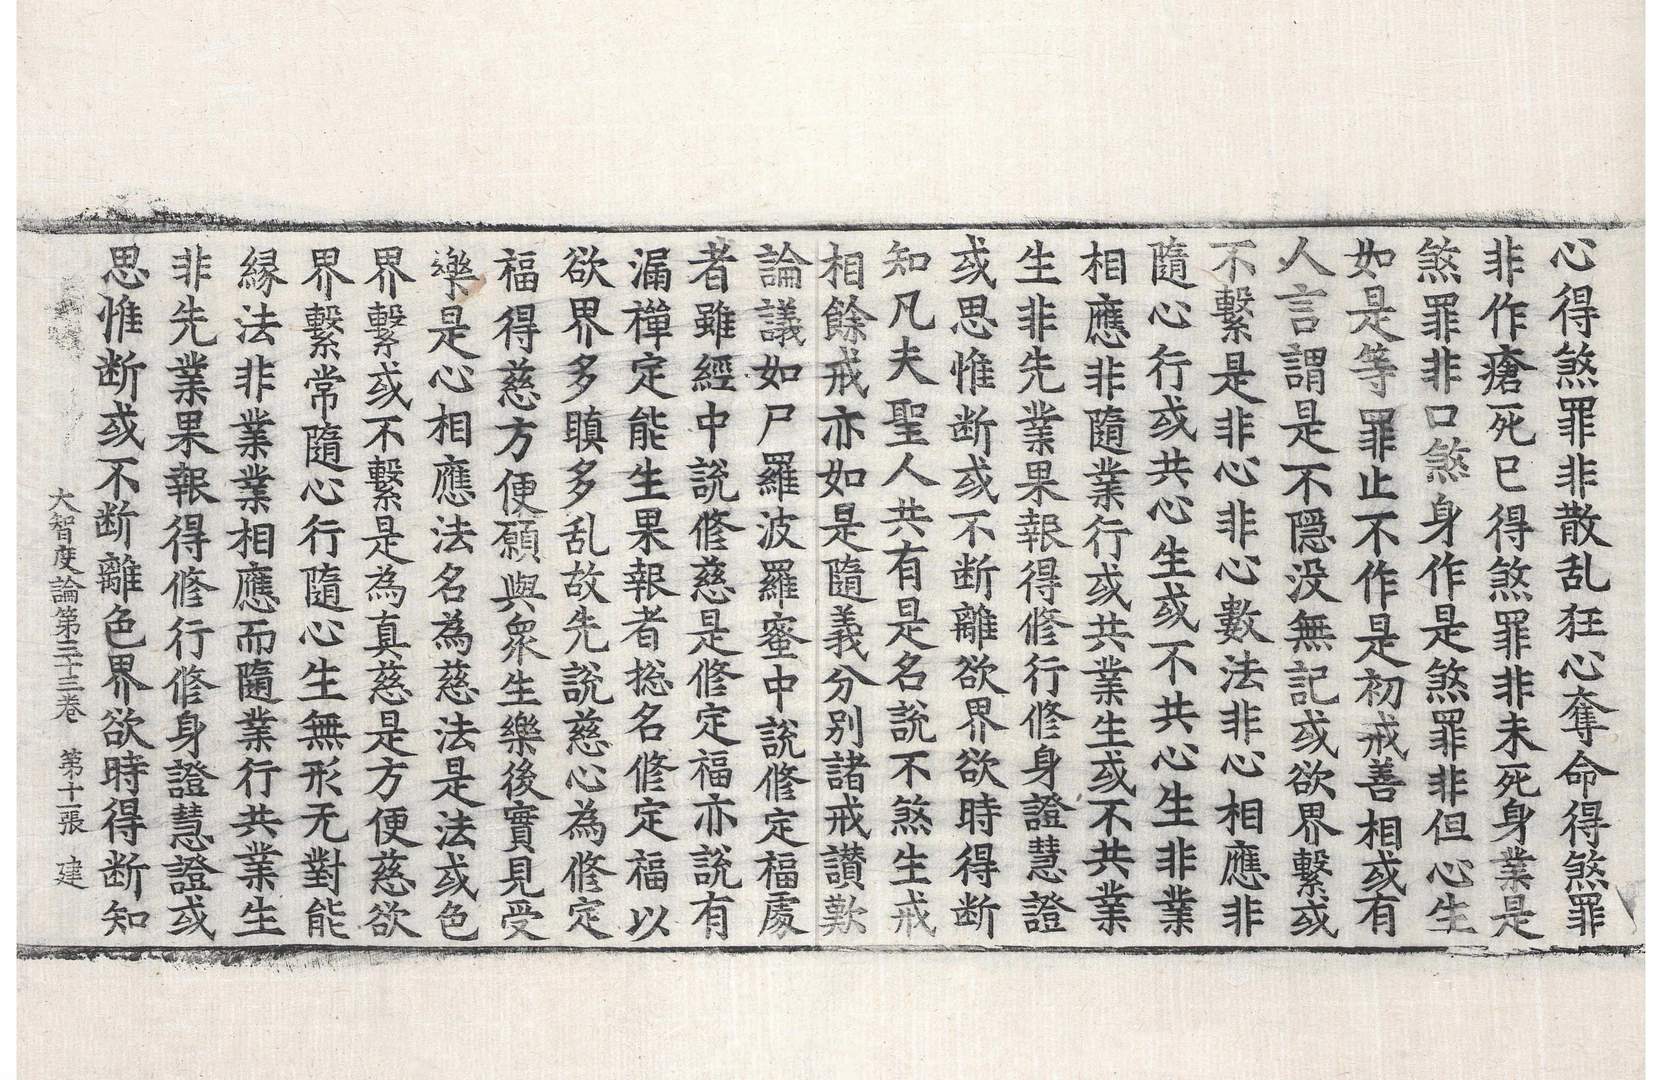 心得煞罪非散乱狂心奪命得煞罪
非作瘡死已得煞罪非未死身業是
煞罪非口煞身作是煞罪非但心生
如是等罪止不作是初戒善相或有
人言謂是不隠没無記或欲界繫或
不繫是非心非心數法非心相應非
隨心行或共心生或不共心生非業
相應非隨業行或共業生或不共業
生非先業果報得修行修身證慧證
或思惟断或不断離欲界欲時得断
知凡夫聖人共有是名說不煞生戒
相餘戒亦如是隨義分別諸戒讃歎
論議如尸羅波羅蜜中說修定福處
者雖經中說修慈是修定福亦說有
漏禪定能生果報者捴名修定福以
欲界多瞋多乱故先說慈心為修定
福得慈方便願與衆生樂後實見受
樂是心相應法名為慈法是法或色
界繫或不繫是為真慈是方便慈欲
界繫常隨心行隨心生無形无對能
緣法非業業相應而隨業行共業生
非先業果報得修行修身證慧證或
思惟断或不断離色界欲時得断知
大智度論第三十三卷 第十一張 建